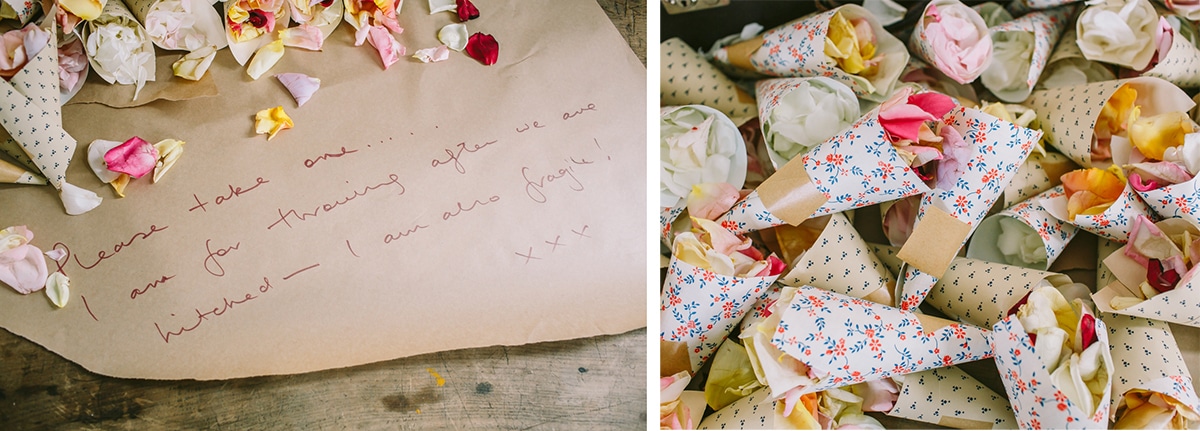 Please take one....
I am for throwing after we are
hitched — I am also fragile!
x x x